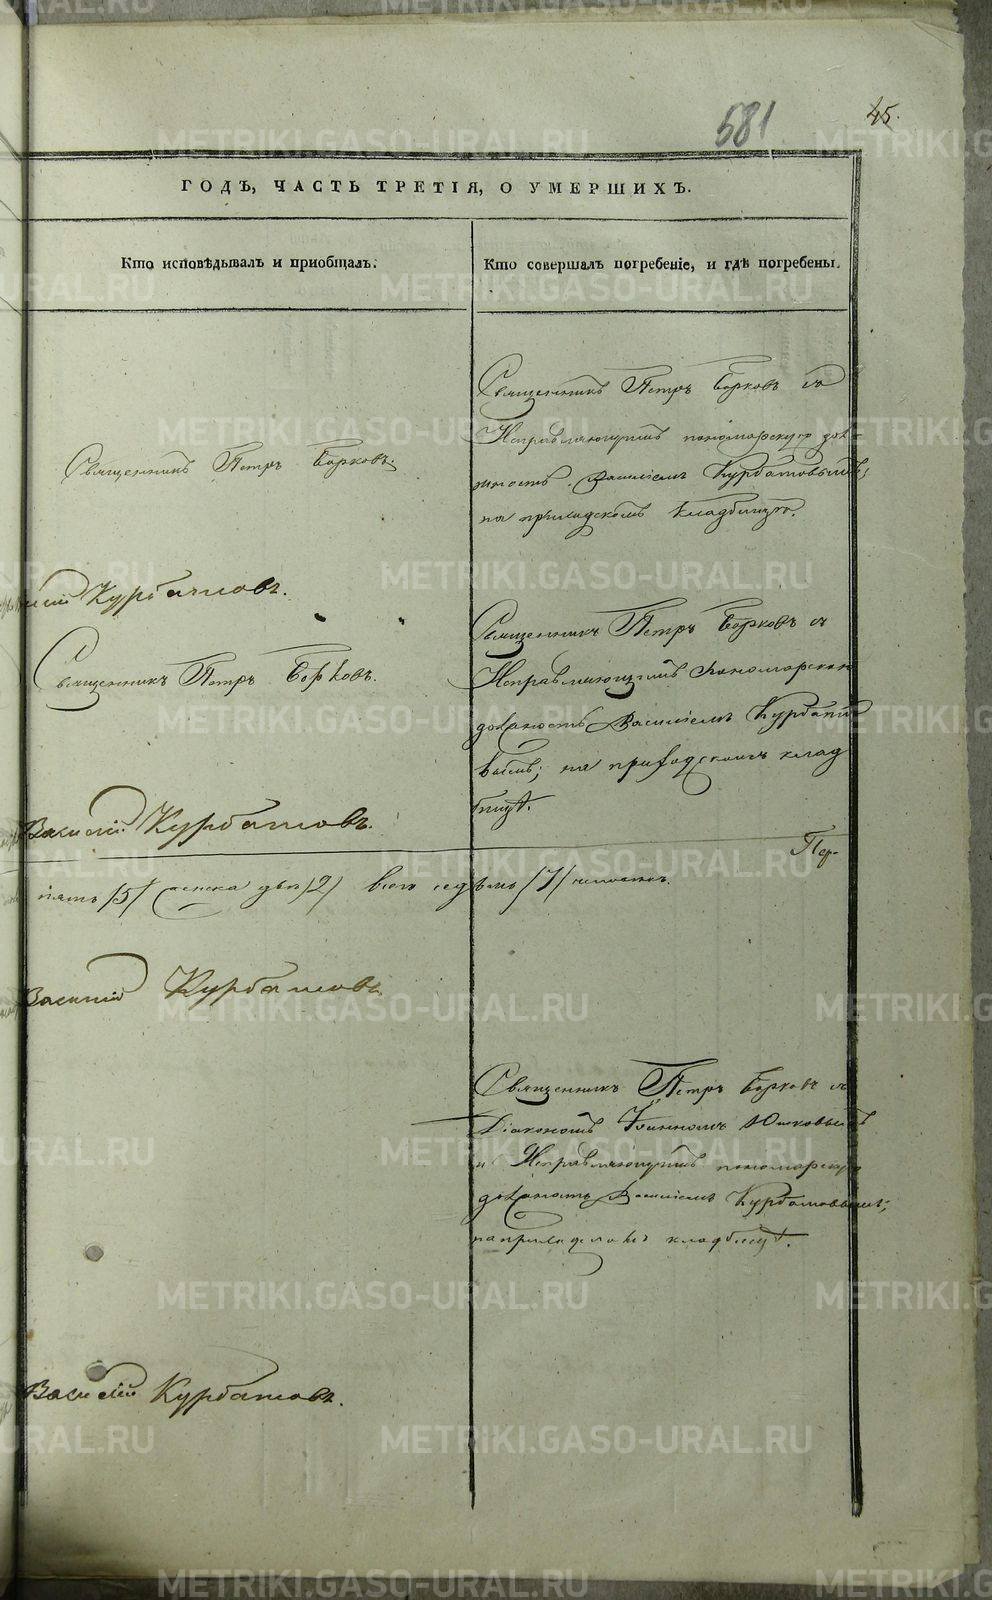 581
45.
ГОДЪ, ЧАСТЬ ТРЕТІЯ, О УМЕРШИХЪ.
Кто исповѣдывалъ и приобщалъ.
Кто совершалъ погребеніе, и гдѣ погребены.
Священникъ Петръ Борковъ.
Священникъ Петръ Борковъ съ
Исправляющимъ пономарскую дол-
жность Василіемъ Курбатовымъ;
на приходскомъ кладбищѣ.
Курбатовъ.
Священникъ Петръ Борковъ.
Священникъ Петръ Борковъ съ
Исправляющимъ Пономарскую
должность Василіемъ Курбато
вымъ; на приходскомъ клад
бищѣ.
Василій Курбатовъ.
Пер-
пять /5/ женска двѣ /2/ всего седьмь /7/ человекъ.
Василій Курбатовъ
Священникъ Петръ Борковъ съ
Діакономъ Іоанномъ Юшковымъ
и Исправляющимъ пономарскую
должность Василіемъ Курбатовымъ;
на приходскомъ кладбищѣ.
Василій Курбатовъ.
METRIKI.GASO-URAL.RU